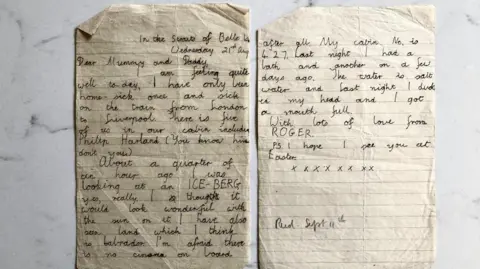 In the Strait of Belle Is
Wednesday 21st Aug
Dear Mummy and Daddy
I am feeling quite
well to-day, I have only been
home sick once and sick
on the train from London
to Liverpool. There is five
of us in our cabin including
Philip Harland (You know him
don't you)
About a quarter of
an hour ago I was
looking at an ICE-BERG
yes, really I thought it
would look wonderful with
the sun on it I have also
seen land which I think
is Labrador I'm afraid there
is no cinema on board
after all. My cabin No. is
427. Last night I had a
bath and another on a few
days ago. The water is salt
water and last night I duck
ed my head and I got
a mouth full
With lots of love from
ROGER.
P.S. I hope I see you at
Easter
x x x x x x x x
Recd Sept 11th